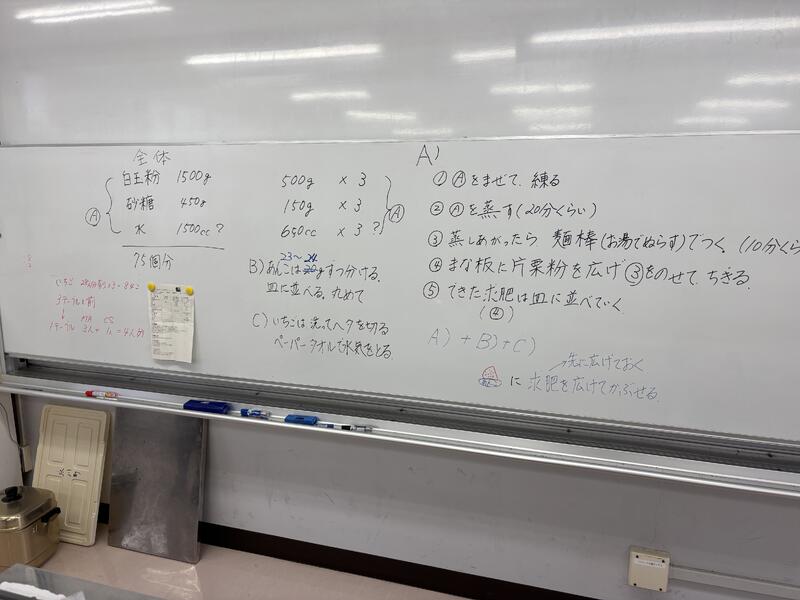 全体
白玉粉 1500g
砂糖 450g
水 1500cc?
Ⓐ
75個分
500g ×3
150g ×3
650cc ×3?
Ⓐ
B) あんこは20gずつ分ける。
23〜24
皿に並べる。丸めて
C) いちごは洗ってヘタを切る
ペーパータオルで水気をとる。
いちご
3テーブル
↓
1テーブル 3人+1人=4人分
A)
① Ⓐをまぜて、練る
② Ⓐを蒸す(20分くらい)
③ 蒸しあがったら 麺棒(お湯でぬらす)でつく。(10分くら
④ まな板に片栗粉を広げ③をのせて、ちぎる。
⑤ できた求肥は皿に並べていく。
(④)
A)+B)+C)
→先に広げておく
に 求肥を広げてかぶせる。